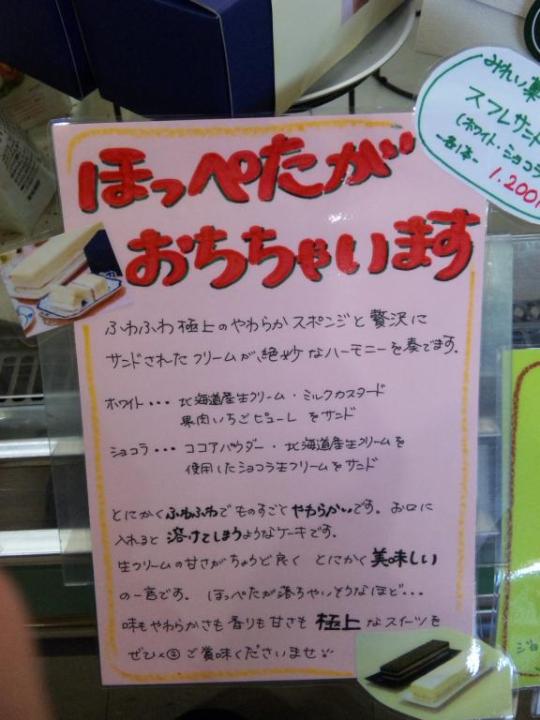 みれい菓
スフレサンド
(ホワイト・ショコラ
各1本
1.200
ほっぺたが
おちちゃいます
ふわふわ極上のやわらかスポンジと贅沢に
サンドされたクリームが、絶妙なハーモニーを奏でます。
ホワイト・・・北海道産生クリーム・ミルクカスタード
果肉いちごピューレをサンド
ショコラ・・・ココアパウダー・北海道産生クリームを
使用したショコラ生クリームをサンド
とにかくふわふわでものすごくやわらかいです。お口に
入れると溶けてしまうようなケーキです。
生クリームの甘さがちょうど良くとにかく美味しい
の一言です。ほっぺたが落ちちゃいそうなほど・・・
味もやわらかさも香りも甘さも極上なスイーツを
ぜひご賞味くださいませ